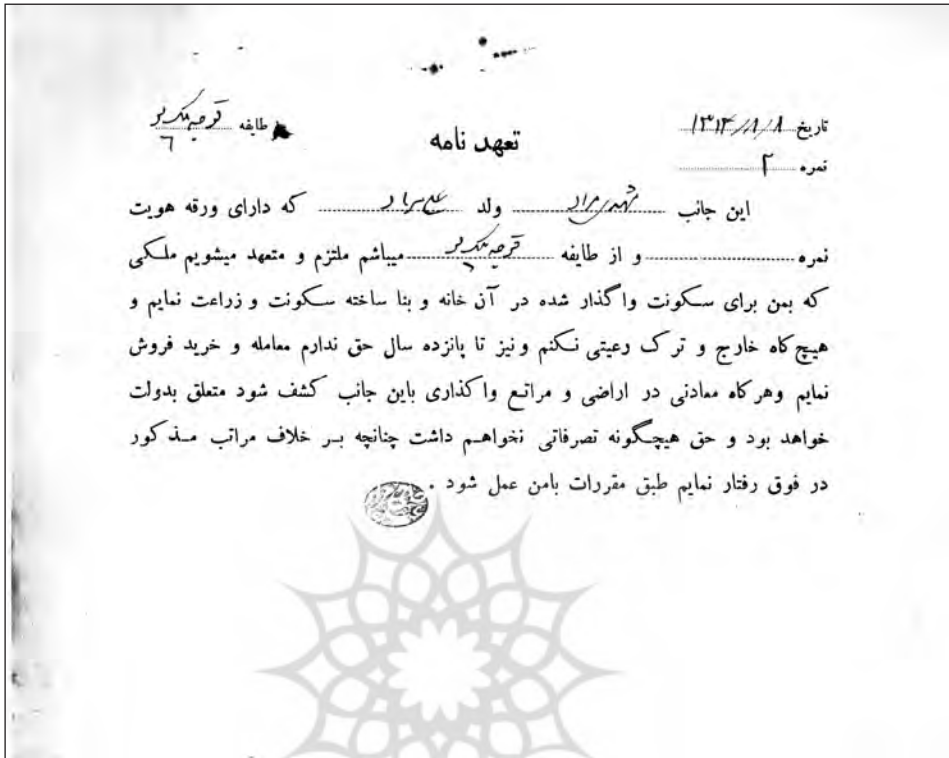 تاریخ ۱۳۱۴/۸/۸
طایفه
تعهد نامه
نمره ۲
این جانب مهدی مراد ولد که دارای ورقه هویت
نمره و از طایفه میباشم ملتزم و متعهد میشویم ملکی
که بمن برای سکونت واگذار شده در آن خانه و بنا ساخته سکونت و زراعت نمایم و
هیچ کاه خارج و ترک رعیتی نکنم ونیز تا پانزده سال حق ندارم معامله و خرید فروش
نمایم وهر کاه معادنی در اراضی و مراتع واکذاری باین جانب کشف شود متعلق بدولت
خواهد بود و حق هیچگونه تصرفاتی نخواهم داشت چنانچه بر خلاف مراتب مذکور
در فوق رفتار نمایم طبق مقررات بامن عمل شود .